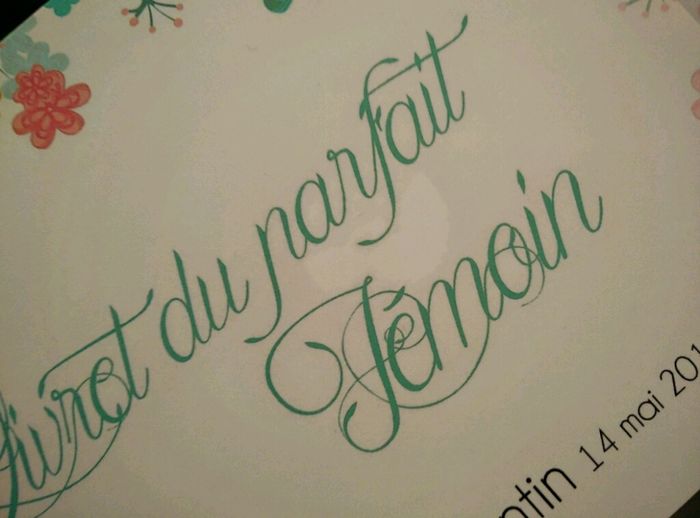 Livret du parfait
Témoin
ntin 14 mai 201